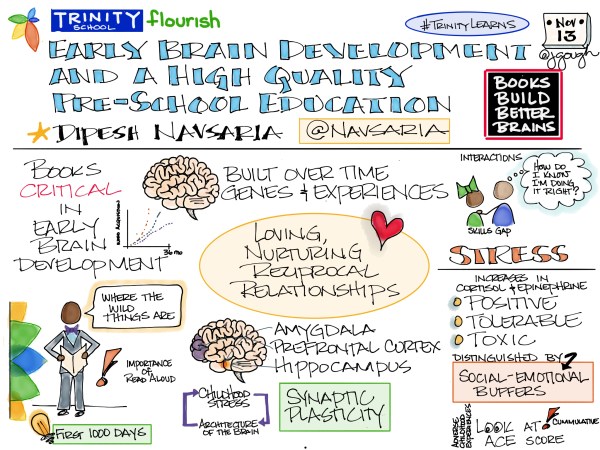 TRINITY
SCHOOL
flourish
#TRINITYLEARNS
NOV
13
@jgough
EARLY BRAIN DEVELOPMENT
AND A HIGH QUALITY
PRE-SCHOOL EDUCATION
DIPESH NAVSARIA
@NAVSARIA
BOOKS
BUILD
BETTER
BRAINS
BOOKS
CRITICAL
IN
EARLY
BRAIN
DEVELOPMENT
36 mo
BUILT OVER TIME
GENES + EXPERIENCES
LOVING,
NURTURING
RECIPROCAL
RELATIONSHIPS
INTERACTIONS
HOW DO
I KNOW
I'M DOING
IT RIGHT?
SKILLS GAP
STRESS
INCREASES IN
CORTISOL + EPINEPHRINE
POSITIVE
TOLERABLE
TOXIC
DISTINGUISHED BY?
SOCIAL-EMOTIONAL
BUFFERS
ADVERSE
CHILDHOOD
EXPERIENCES
LOOK AT
ACE SCORE
CUMMULATIVE
WHERE THE
WILD
THINGS ARE
IMPORTANCE
OF READ ALOUD
FIRST 1000 DAYS
AMYGDALA
PREFRONTAL CORTEX
HIPPOCAMPUS
CHILDHOOD
STRESS
ARCHITECTURE
OF THE BRAIN
SYNAPTIC
PLASTICITY